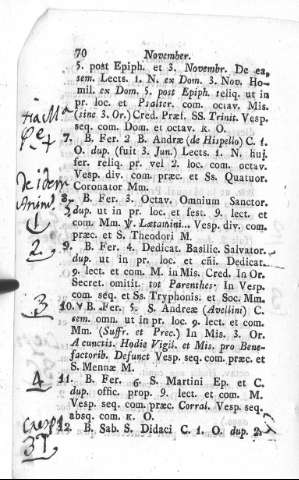 70 November.
5. post Epiph. et 3. Novembr. De ea,
sem. Lects. 1. N. ex Dom. 3. Nov. Ho-
mil. ex Dom. 5. post Epiph. reliq. ut in
pr. loc. et Psalter. com. octav. Mis.
(sine 3. Or.) Cred. Præf. SS. Trinit. Vesp.
seq. com. Dom. et octav. K. O.
7. B. Fer. 2 B. Andræ (de Hispello) C. 1.
O. dup. (fuit 3. Jun.) Lects. 1. N. huj.
fer. reliq. pr. vel 2. loc. com. octav.
Vesp. div. com. præc. et Ss. Quatuor.
Coronator Mm.
8. B. Fer. 3. Octav. Omnium Sanctor.
dup. ut in pr. loc. et fest. 9. lect. et
com. Mm. ℣. Lætamini... Vesp. div. com.
præc. et S. Theodori M.
9. B. Fer. 4. Dedicat. Basilic. Salvator.
dup. ut in pr. loc. et cñi. Dedicat.
9. lect. et com. M. in Mis. Cred. In Or.
Secret. omitit. tot Parenthes. In Vesp.
com. seq. et Ss. Tryphonis. et Soc. Mm.
10. B. Fer. 5. S. Andreæ (Avellini) C.
sem. omn. ut in pr. loc. 9. lect. et com.
Mm. (Suffr. et Prec.) In Mis. 3. Or.
A cunctis. Hodie Vigil. et Mis. pro Bene-
factorib. Defunct Vesp. seq. com. præc. et
S. Mennæ M.
11. B. Fer. 6. S. Martini Ep. et C.
dup. offic. prop. 9. lect. et com. M.
Vesp. seq. com. præc. Corral. Vesp. seq.
absq. com. K. O.
12. B. Sab. S. Didaci C. 1. O. dup. 2.
De idem
1
2
3
4